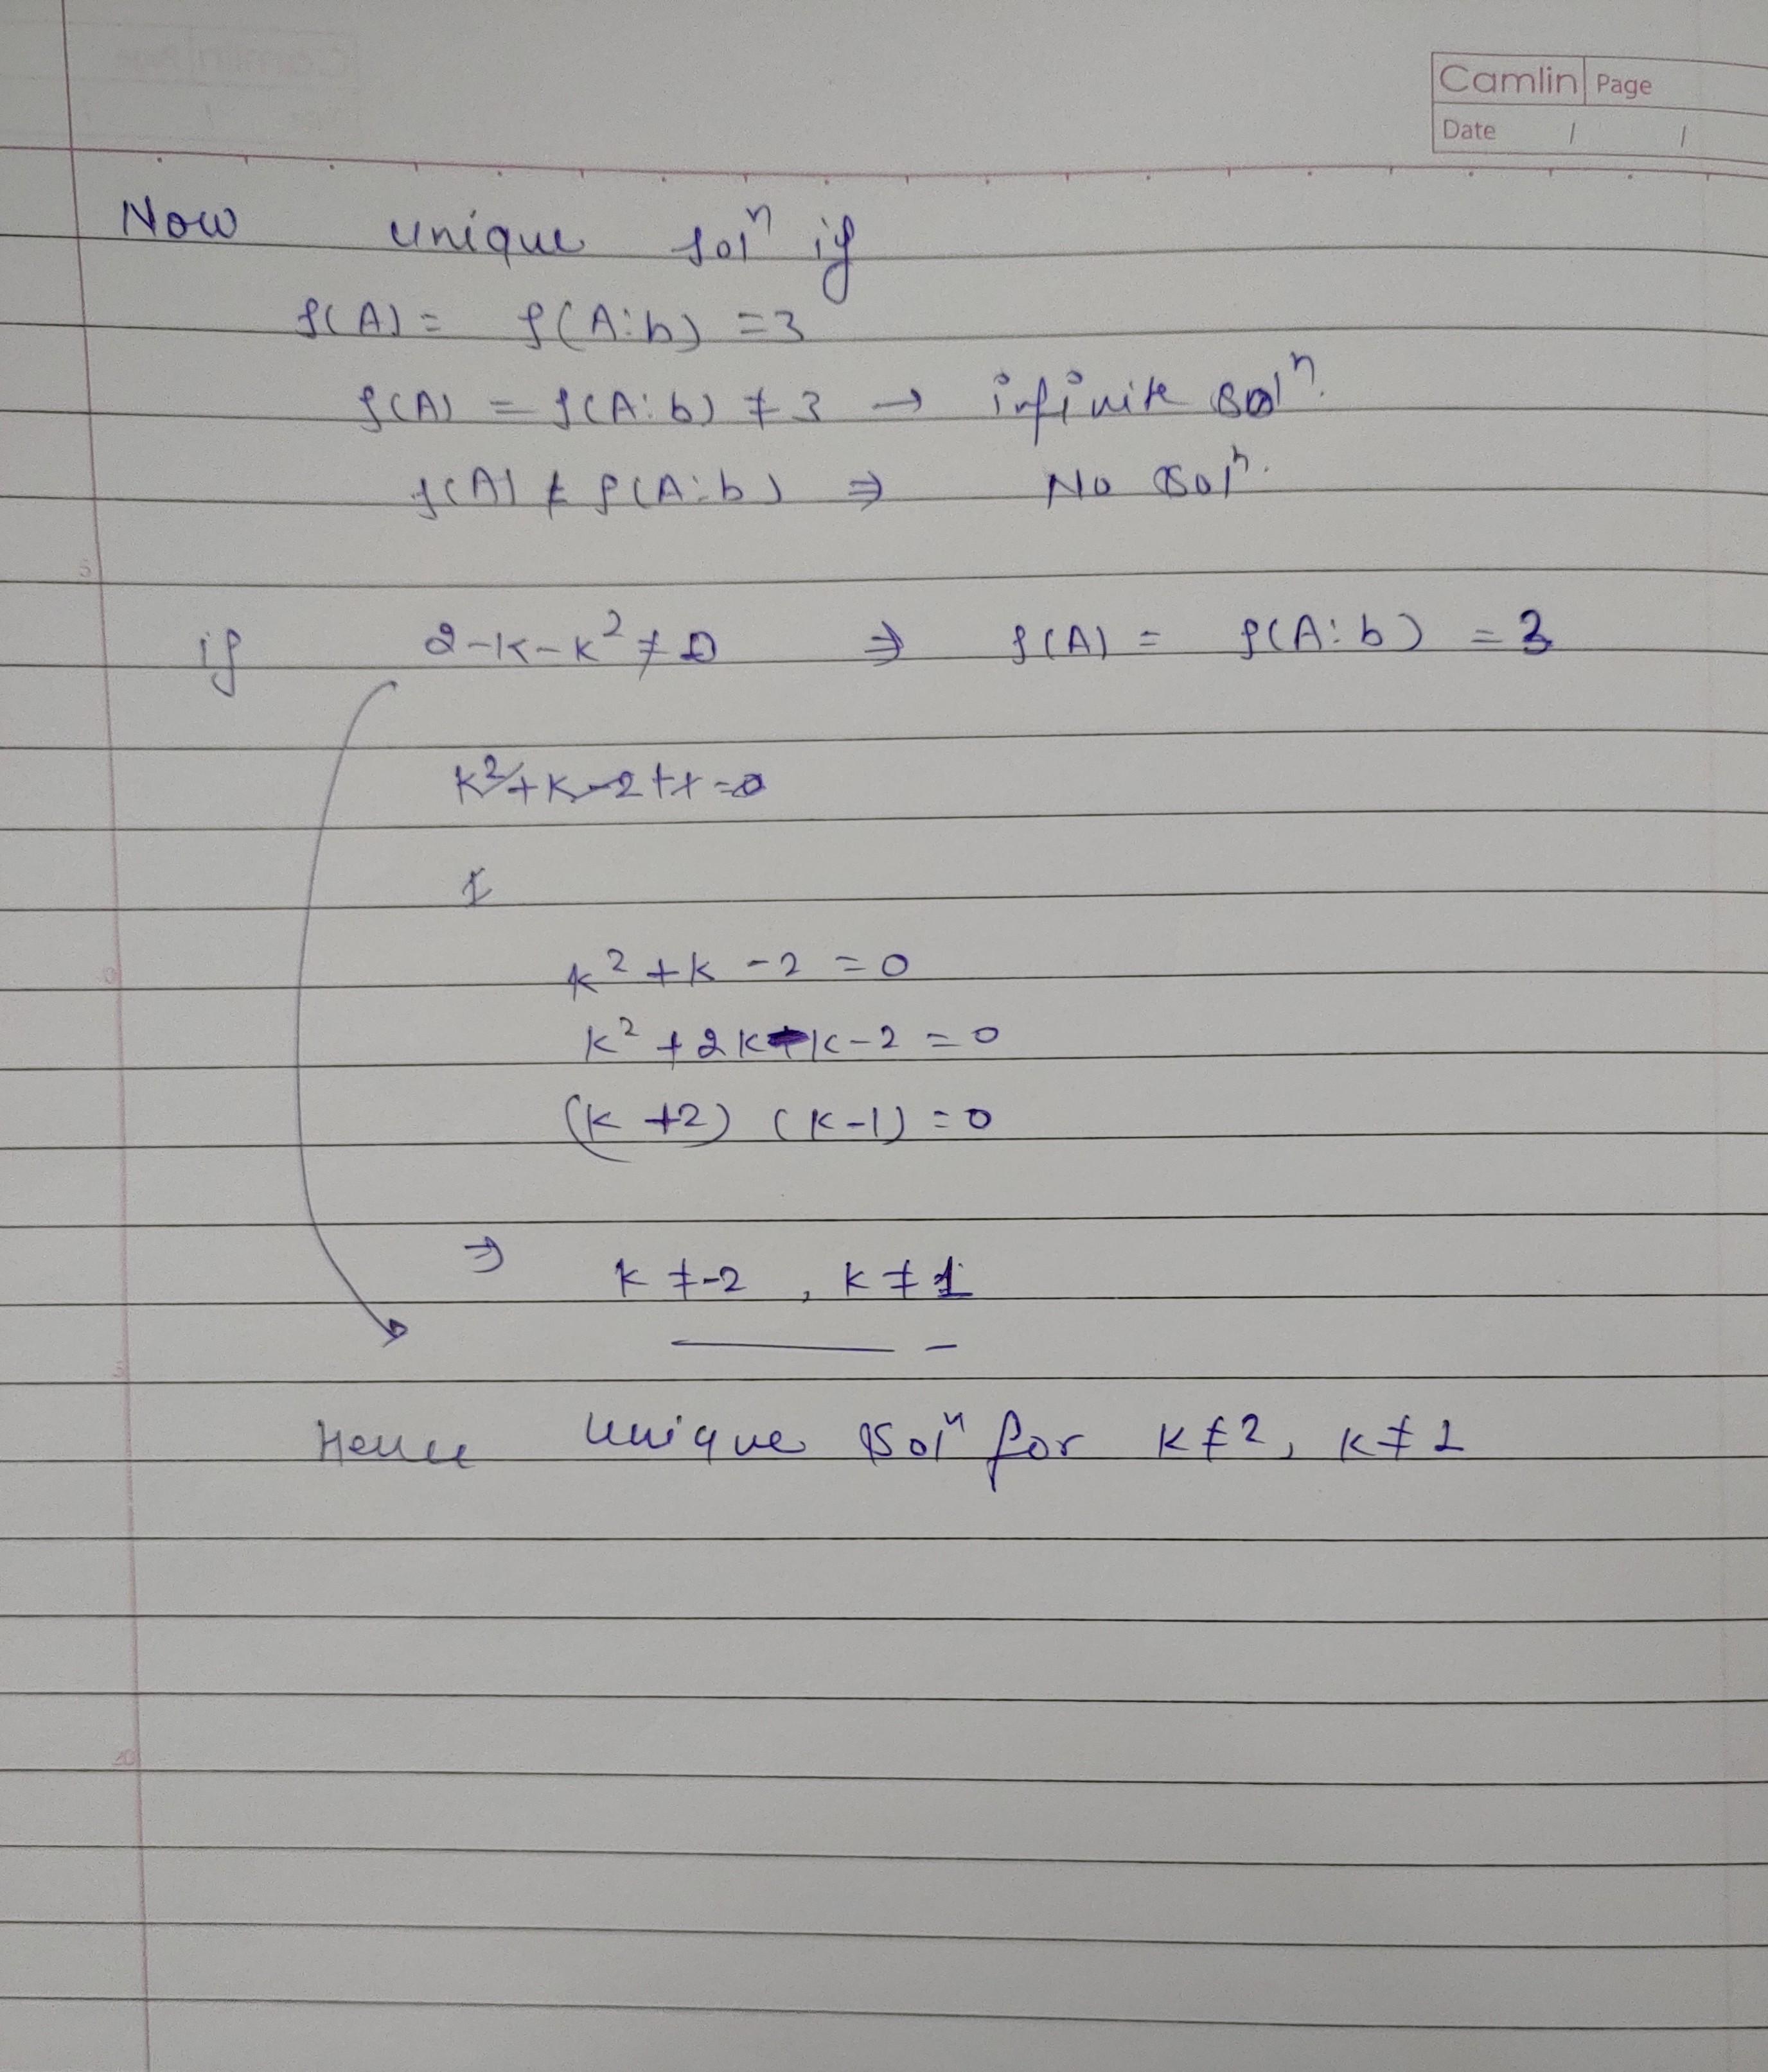 Camlin Page
Date / /
Now unique solⁿ if
ρ(A) = ρ(A:b) = 3
ρ(A) = ρ(A:b) ≠ 3 → infinite solⁿ.
ρ(A) ≠ ρ(A:b) ⇒ No Solⁿ.
if 2-k-k² ≠ 0 ⇒ ρ(A) = ρ(A:b) = 3
k²+k-2=0
k² + 2k - k - 2 = 0
(k +2) (k-1) = 0
⇒ k ≠ -2 , k ≠ 1
Hence unique Solⁿ for k ≠ 2, k ≠ 1